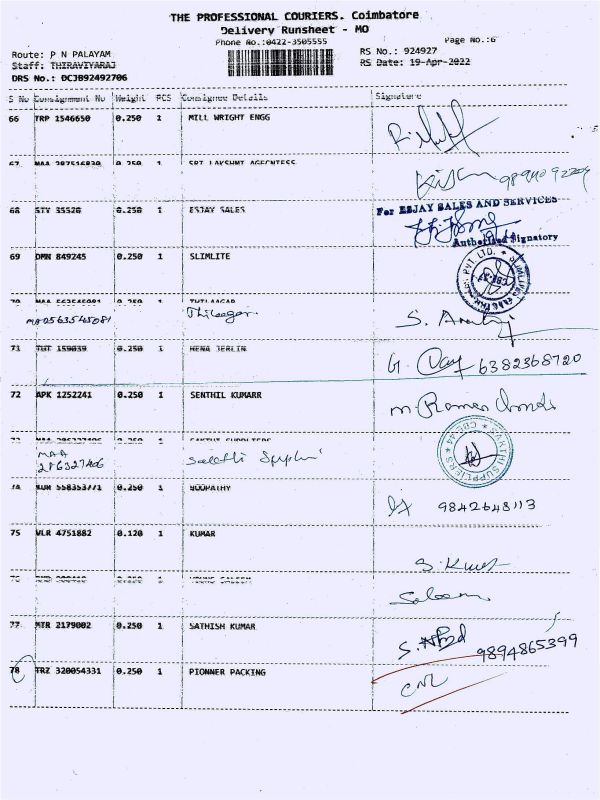 THE PROFESSIONAL COURIERS. Coimbatore
Delivery Runsheet - MO
Phone No.:0422-3505555
Page No.:6
Route: P N PALAYAM
RS No.: 924927
Staff: THIRAVIYARAJ
RS Date: 19-Apr-2022
DRS No.: DCJB92492706
S No Consignment No Weight PCS Consignee Details Signature
66 TRP 1546650 0.250 1 MILL WRIGHT ENGG
67 MAA 287516830 0.250 1 SRI LAKSHMI AGECNIESS
68 STY 35520 0.250 1 ESJAY SALES
For ESJAY SALES AND SERVICES
Authorised Signatory
69 DMN 849245 0.250 1 SLIMLITE
PVT LTD.
70 MAA 563545081 0.250 1 THILAAGAR
MAA 563545081 Thilaagar
71 TUT 159039 0.250 1 HENA JERLIN
6382368720
72 APK 1252241 0.250 1 SENTHIL KUMARR
73 MAA 286327406 0.250 1 SAKTHI SUPPLIERS
MAA
286327406
SAKTHI SUPPLIERS
CBE-44
74 KUM 558353771 0.250 1 BOOPATHY
9842648113
75 VLR 4751882 0.120 1 KUMAR
S. Kumar
76 0.250 1 YOUNG SALEEM
Saleem
77 MTR 2179002 0.250 1 SATHISH KUMAR
9894865399
78 TRZ 320054331 0.250 1 PIONNER PACKING